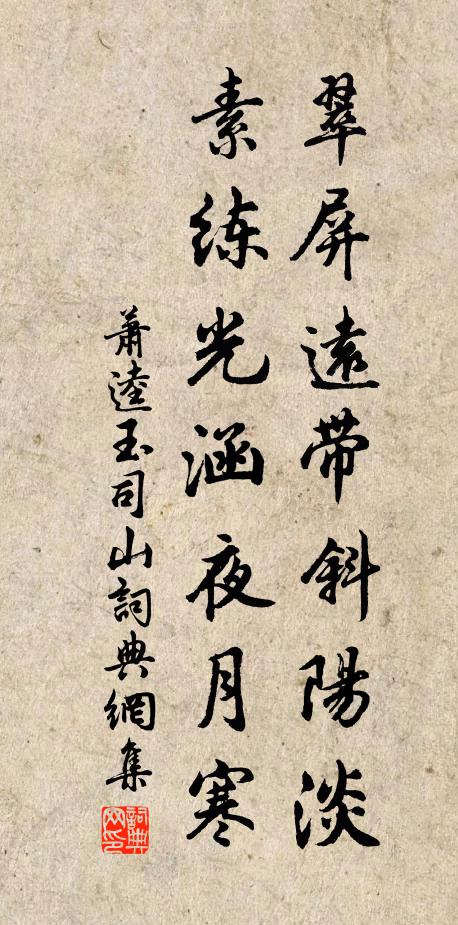 翠屏遠帶斜陽淡
素練光涵夜月寒
蕭逵玉司山詞典網集
詞典网印